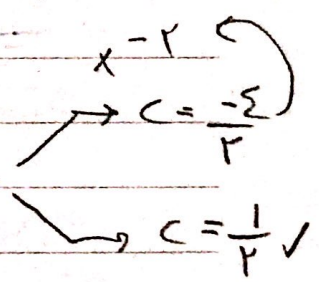 × -٢
→ C = -٤/٢
→ C = ١/٢ ✓